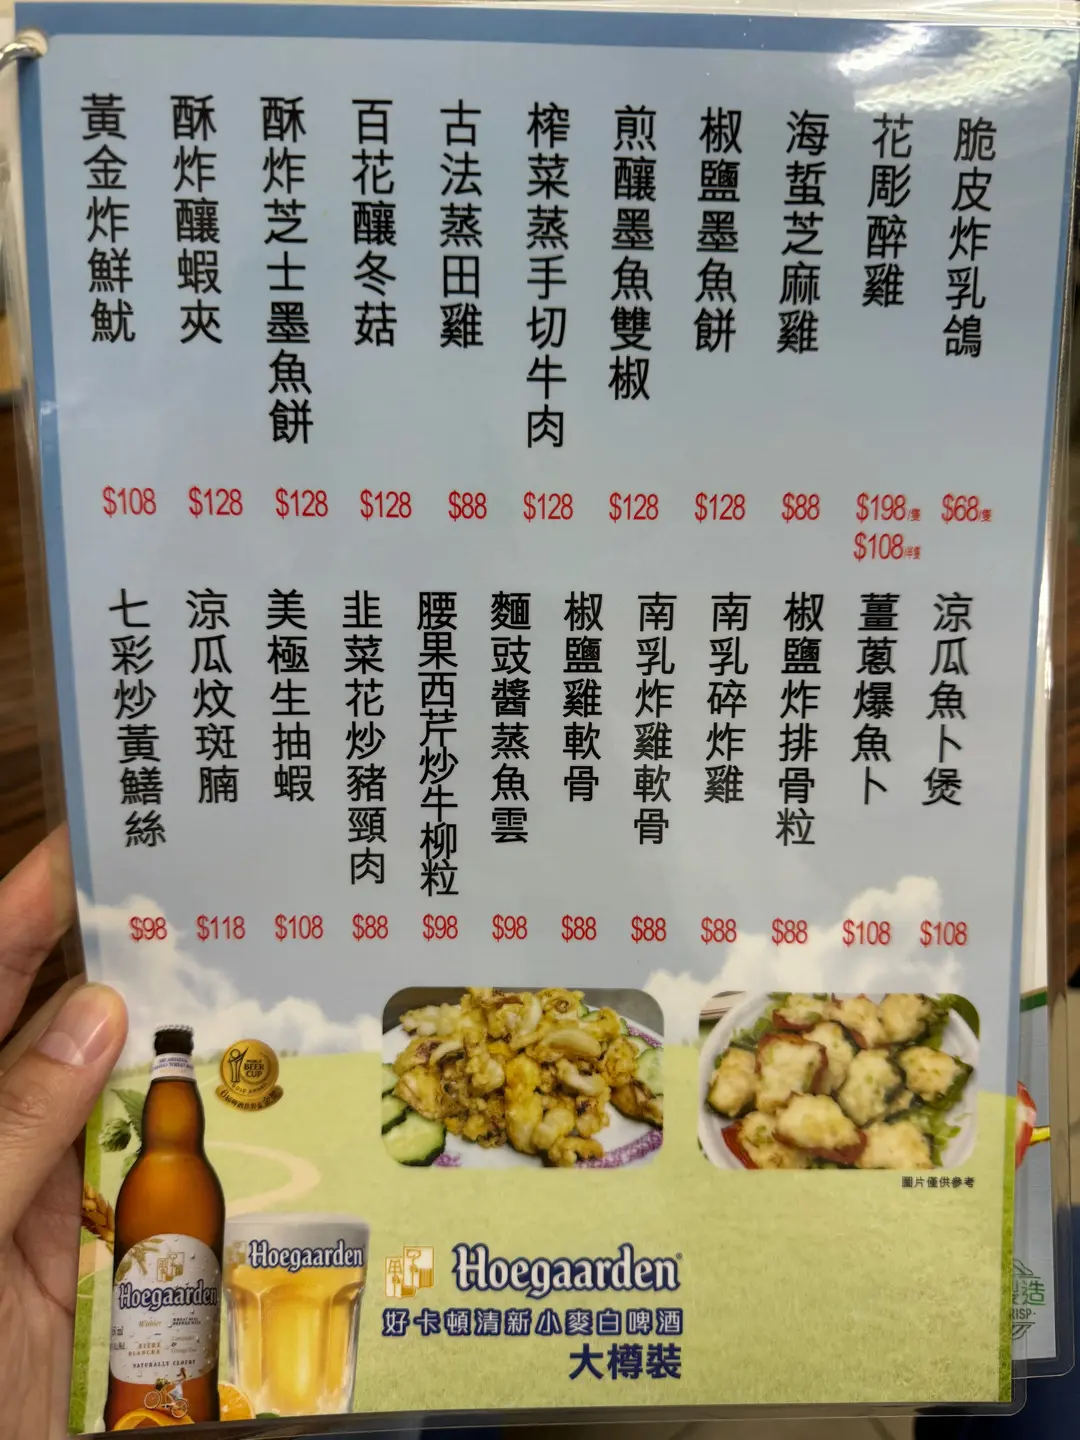 脆皮炸乳鴿
$68/隻
花彫醉雞
$198/隻
$108/半隻
海蜇芝麻雞
$88
椒鹽墨魚餅
$128
煎釀墨魚雙椒
$128
榨菜蒸手切牛肉
$128
古法蒸田雞
$88
百花釀冬菇
$128
酥炸芝士墨魚餅
$128
酥炸釀蝦夾
$128
黃金炸鮮魷
$108
涼瓜魚卜煲
$108
薑蔥爆魚卜
$108
椒鹽炸排骨粒
$88
南乳碎炸雞
$88
南乳炸雞軟骨
$88
椒鹽雞軟骨
$88
麵豉醬蒸魚雲
$98
腰果西芹炒牛柳粒
$98
韭菜花炒豬頸肉
$88
美極生抽蝦
$108
涼瓜炆斑腩
$118
七彩炒黃鱔絲
$98
圖片僅供參考
WORLD
BEER
CUP
GOLD AWARD
Hoegaarden
NATURALLY CLOUDY
Hoegaarden
Hoegaarden
好卡頓清新小麥白啤酒
大樽裝
造
RISP